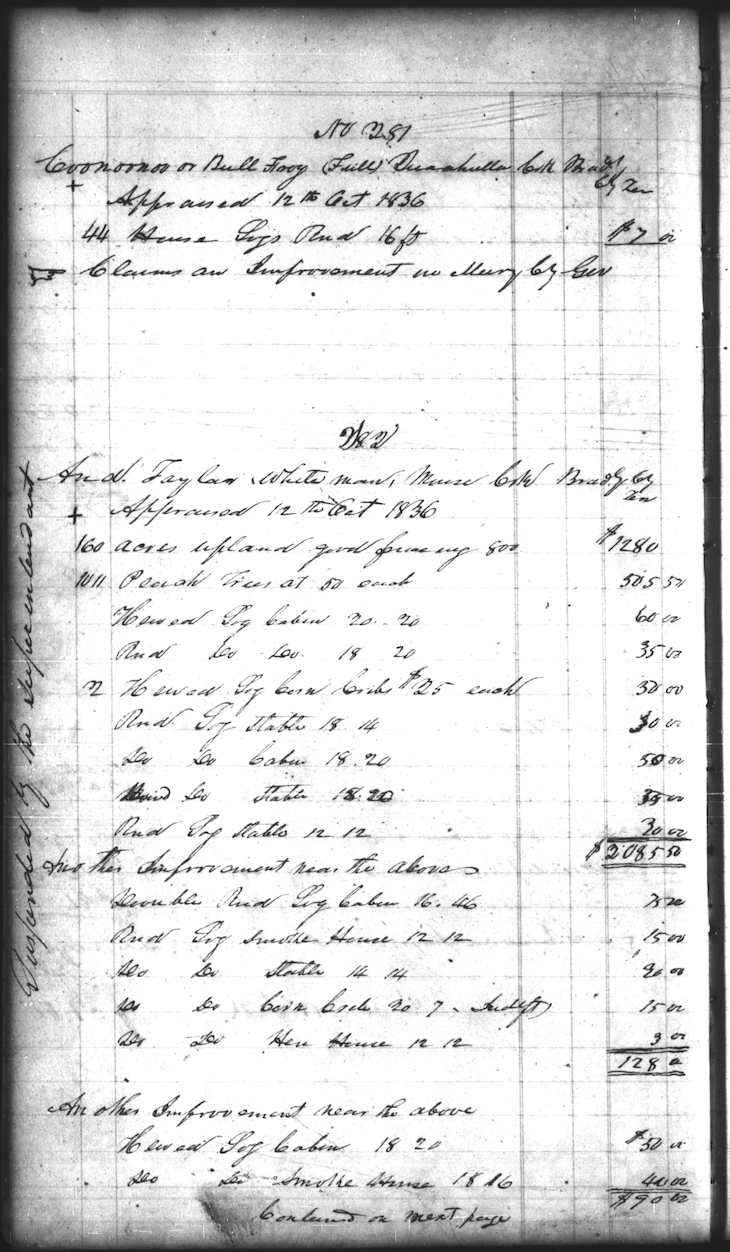 No 281
Coonoonoo or Bull Frog (Full) Creek Brad
Cty Ten
+ Appraised 12th Oct 1836
44 House Logs Rnd 16 ft $7 00
Claims an Improvement in Mury Cty Geo
282
And. Taylor White man, Mouse Crk Brady Cty
Ten
+ Appraised 12th Oct 1836
160 acres upland good fencing 800 $1280
1011 Peach Trees at 50 each 505 50
Hewed Log Cabin 20. 20 60 00
Rnd Do Do. 18 20 35 00
2 Hewed Log Corn Cribs $25 each 50 00
Rnd Log Stable 18. 14 30 00
Do Do Cabin 18. 20 50 00
Do Stable 18.20 00
Rnd Log Stable 12 12 00
$2085 50
Another Improvement near the above
Double Rnd Log Cabin 16. 46 75 00
Rnd Log Smoke House 12 12 15 00
Do Do Stable 14 14 20 00
Do Do Corn Crib 20 7 15 00
Do Do Hen House 12 12 3 00
128 0
Another Improvement near the above
Hewed Log Cabin 18 20 $50 00
Do Do Smoke House 18 16 40 00
$90 00
Contined on next page
Suspended by the Superintendant